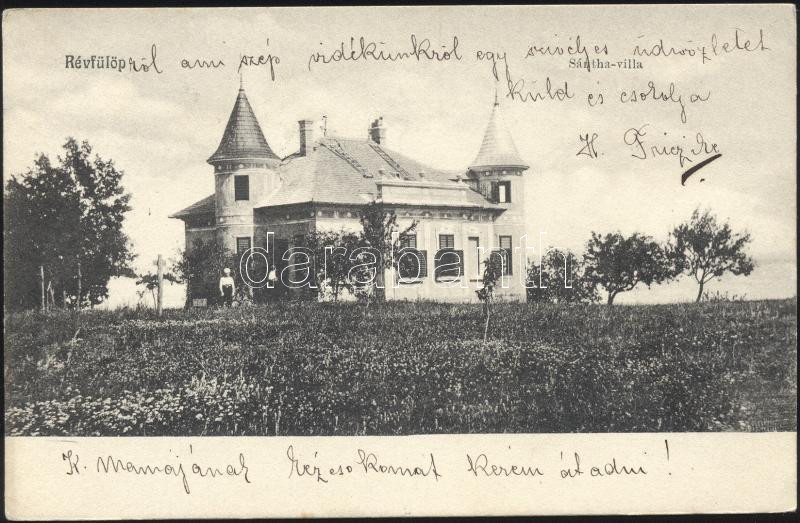 Révfülöpről ami szép vidékünkről egy szivélyes üdvözletet
Sántha-villa
küld és csókolja
K. Friczike
darabanth.com
K. Mamájának kézcsokomat kérem átadni!